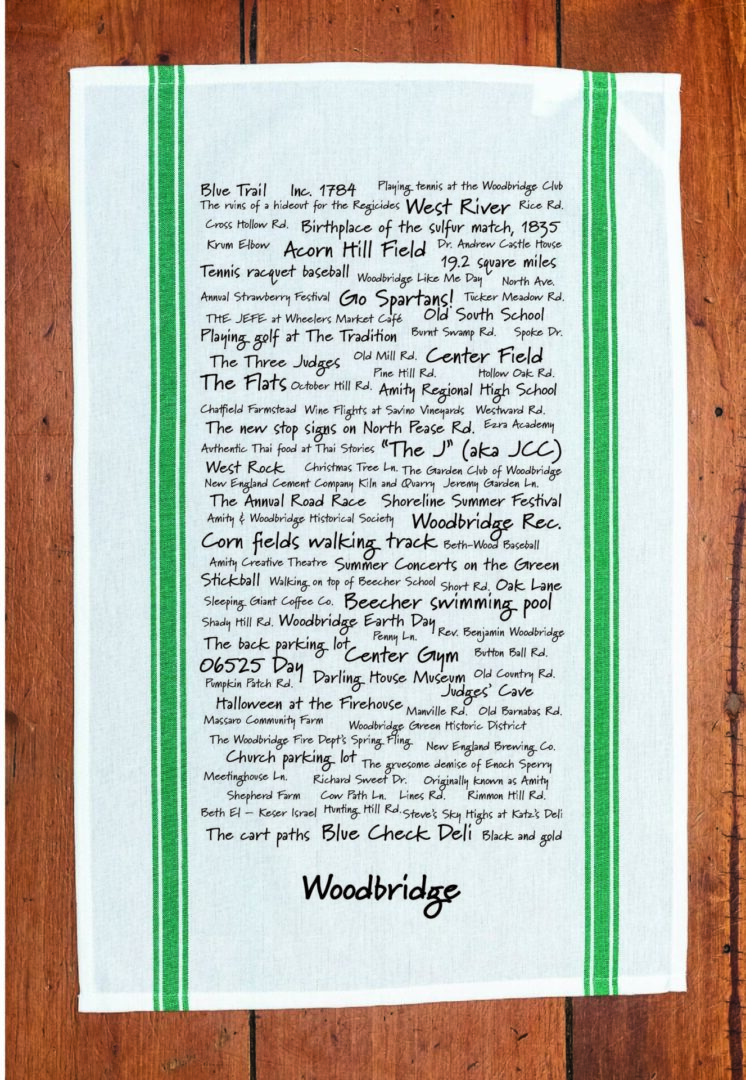 Blue Trail Inc. 1784 Playing tennis at the Woodbridge Club
The ruins of a hideout for the Regicides West River Rice Rd.
Cross Hollow Rd. Birthplace of the sulfur match, 1835
Krum Elbow Acorn Hill Field Dr. Andrew Castle House
Tennis racquet baseball 19.2 square miles
Woodbridge Like Me Day North Ave.
Annual Strawberry Festival Go Spartans! Tucker Meadow Rd.
THE JEFE at Wheelers Market Café Old South School
Playing golf at The Tradition Burnt Swamp Rd. Spoke Dr.
The Three Judges Old Mill Rd. Center Field
Pine Hill Rd. Hollow Oak Rd.
The Flats October Hill Rd. Amity Regional High School
Chatfield Farmstead Wine Flights at Savino Vineyards Westward Rd.
The new stop signs on North Pease Rd. Ezra Academy
Authentic Thai food at Thai Stories "The J" (aka JCC)
West Rock Christmas Tree Ln. The Garden Club of Woodbridge
New England Cement Company Kiln and Quarry Jeremy Garden Ln.
The Annual Road Race Shoreline Summer Festival
Amity & Woodbridge Historical Society Woodbridge Rec.
Corn fields walking track Beth-Wood Baseball
Amity Creative Theatre Summer Concerts on the Green
Stickball Walking on top of Beecher School Short Rd. Oak Lane
Sleeping Giant Coffee Co. Beecher swimming pool
Shady Hill Rd. Woodbridge Earth Day Rev. Benjamin Woodbridge
The back parking lot Penny Ln. Center Gym Button Ball Rd.
06525 Day Darling House Museum Old Country Rd.
Pumpkin Patch Rd. Judges' Cave
Halloween at the Firehouse Manville Rd. Old Barnabas Rd.
Massaro Community Farm Woodbridge Green Historic District
The Woodbridge Fire Dept's Spring Fling New England Brewing Co.
Church parking lot The gruesome demise of Enoch Sperry
Meetinghouse Ln. Richard Sweet Dr. Originally known as Amity
Shepherd Farm Cow Path Ln. Lines Rd. Rimmon Hill Rd.
Beth El – Keser Israel Hunting Hill Rd. Steve's Sky Highs at Katz's Deli
The cart paths Blue Check Deli Black and gold
Woodbridge